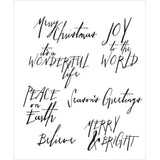 Merry
Christmas
JOY
to the
WORLD
it's a
WONDERFUL
life
PEACE
on
Earth
Season's Greetings
Believe
MERRY
& BRIGHT